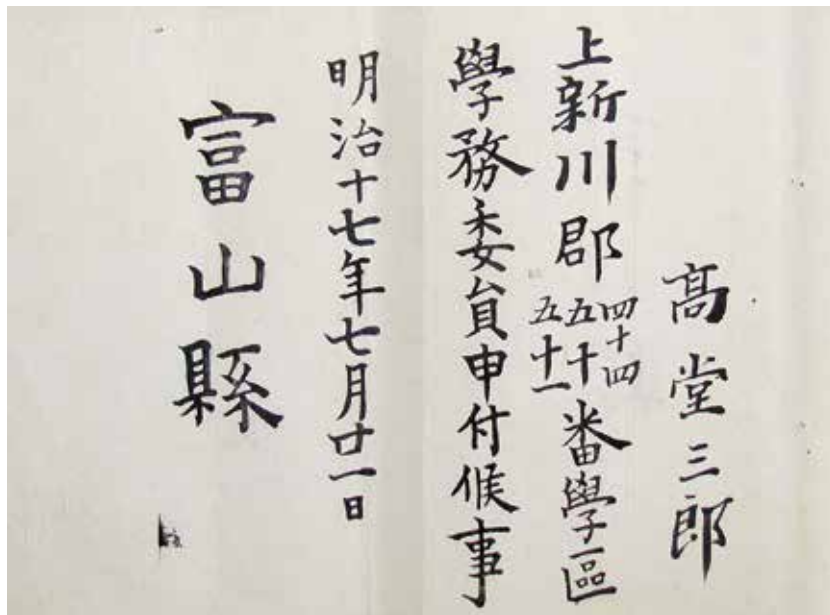 髙堂三郎
上新川郡四十四五十五十一番學區
學務委員申付候事
明治十七年七月廿一日
富山縣